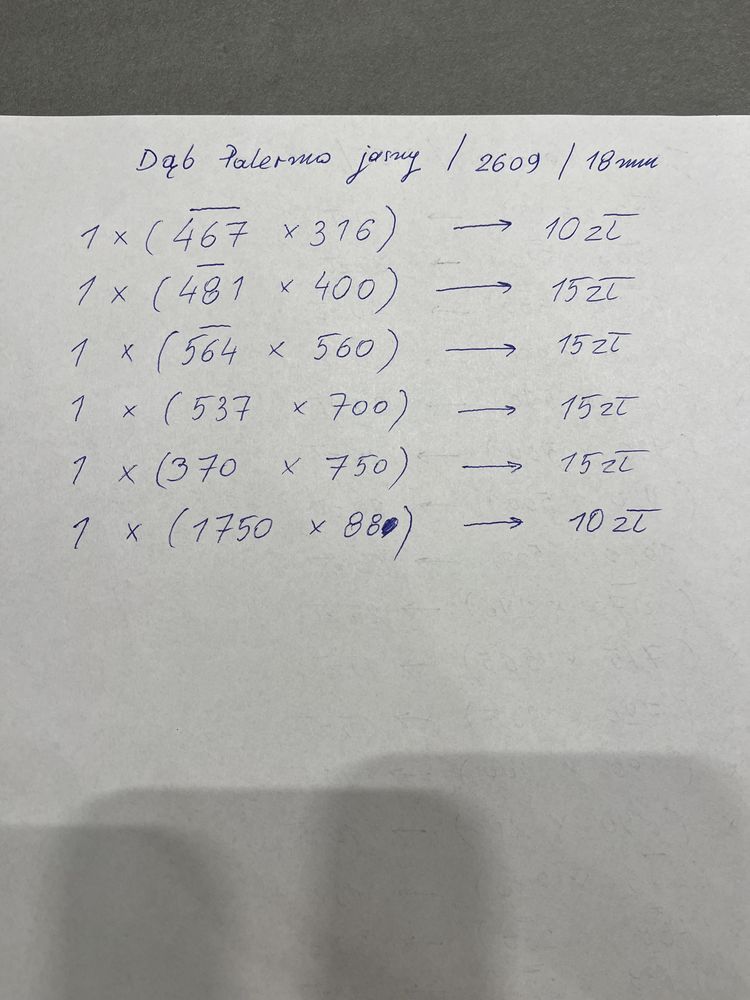 Dąb Palermo jasny / 2609 / 18mm
1 × (467 × 316) → 10 zł
1 × (481 × 400) → 15 zł
1 × (564 × 560) → 15 zł
1 × (537 × 700) → 15 zł
1 × (370 × 750) → 15 zł
1 × (1750 × 88) → 10 zł